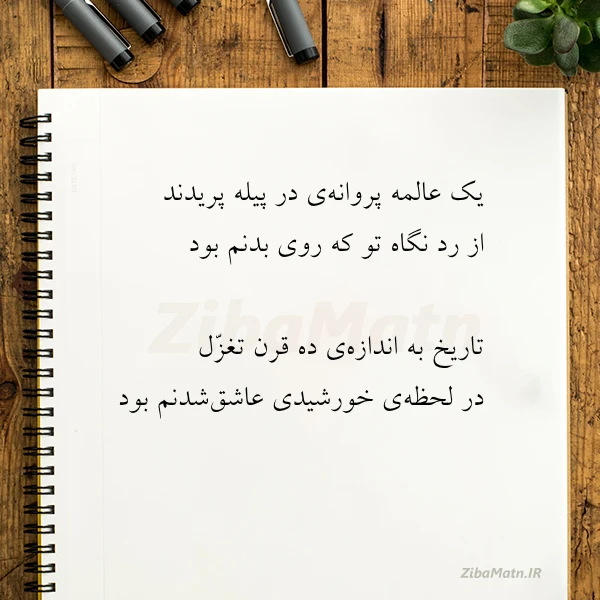 یک عالمه پروانه‌ی در پیله پریدند
از رد نگاه تو که روی بدنم بود
تاریخ به اندازه‌ی ده قرن تغزّل
در لحظه‌ی خورشیدی عاشق‌شدنم بود
ZibaMatn
ZibaMatn.IR